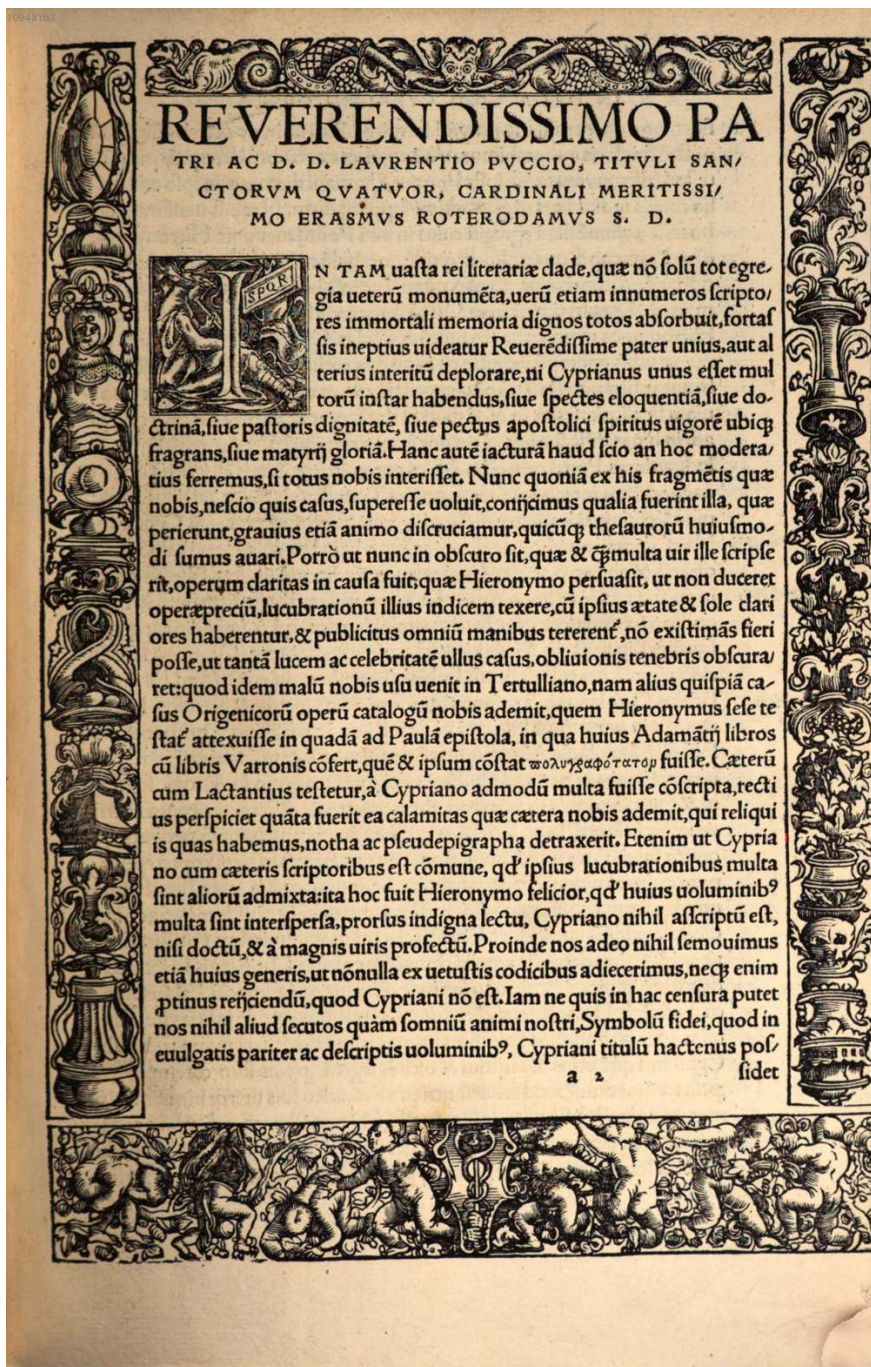 10948180
REVERENDISSIMO PA
TRI AC D. D. LAVRENTIO PVCCIO, TITVLI SAN/
CTORVM QVATVOR, CARDINALI MERITISSI/
MO ERASMVS ROTERODAMVS S. D.
SPQR
IN TAM uasta rei literariæ clade, quæ nõ solũ tot egre-
gia ueterũ monumẽta, uerũ etiam innumeros scripto/
res immortali memoria dignos totos absorbuit, fortas
sis ineptius uideatur Reuerẽdissime pater unius, aut al
terius interitũ deplorare, ni Cyprianus unus esset mul
torũ instar habendus, siue spectes eloquentiã, siue do-
ctrinã, siue pastoris dignitatẽ, siue pectus apostolici spiritus uigorẽ ubiqꝫ
fragrans, siue matyrij gloriã. Hanc autẽ iacturã haud scio an hoc modera/
tius ferremus, si totus nobis interisset. Nunc quoniã ex his fragmẽtis quæ
nobis, nescio quis casus, superesse uoluit, conijcimus qualia fuerint illa, quæ
perierunt, grauius etiã animo discruciamur, quicũqꝫ thesaurorũ huiusmo-
di sumus auari. Porrò ut nunc in obscuro sit, quæ & q̃ꝫ multa uir ille scripse
rit, operum claritas in causa fuit, quæ Hieronymo persuasit, ut non duceret
operæpreciũ, lucubrationũ illius indicem texere, cũ ipsius ætate & sole clari
ores haberentur, & publicitus omniũ manibus tererent᷑, nõ existimãs fieri
posse, ut tantã lucem ac celebritatẽ ullus casus, obliuionis tenebris obscura/
ret: quod idem malũ nobis usu uenit in Tertulliano, nam alius quispiã ca-
sus Origenicorũ operũ catalogũ nobis ademit, quem Hieronymus sese te
stat᷑ attexuisse in quadã ad Paulã epistola, in qua huius Adamãtij libros
cũ libris Varronis cõfert, quẽ & ipsum cõstat πολυγραφότατορ fuisse. Cæterũ
cum Lactantius testetur, à Cypriano admodũ multa fuisse cõscripta, recti
us perspiciet quãta fuerit ea calamitas quæ cætera nobis ademit, qui reliqui
is quas habemus, notha ac pseudepigrapha detraxerit. Etenim ut Cypria
no cum cæteris scriptoribus est cõmune, qd' ipsius lucubrationibus multa
sint aliorũ admixta: ita hoc fuit Hieronymo felicior, qd' huius uoluminibꝰ
multa sint interspersa, prorsus indigna lectu, Cypriano nihil asscriptũ est,
nisi doctũ, & à magnis uiris profectũ. Proinde nos adeo nihil semouimus
etiã huius generis, ut nõnulla ex uetustis codicibus adiecerimus, neqꝫ enim
ꝓtinus reijciendũ, quod Cypriani nõ est. Iam ne quis in hac censura putet
nos nihil aliud secutos quàm somniũ animi nostri, Symbolũ fidei, quod in
euulgatis pariter ac descriptis uoluminibꝰ, Cypriani titulũ hactenus pos/
a 2 sidet